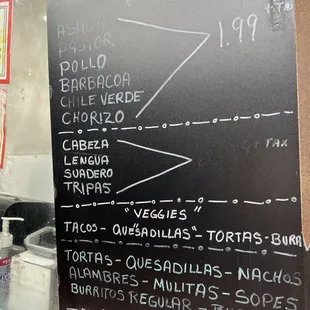 ASADA
PASTOR
POLLO
BARBACOA
CHILE VERDE
CHORIZO
1.99
CABEZA
LENGUA
SUADERO
TRIPAS
TAX
"VEGGIES"
TACOS - QUESADILLAS - TORTAS - BURR
TORTAS - QUESADILLAS - NACHOS
ALAMBRES - MULITAS - SOPES
BURRITOS REGULAR -